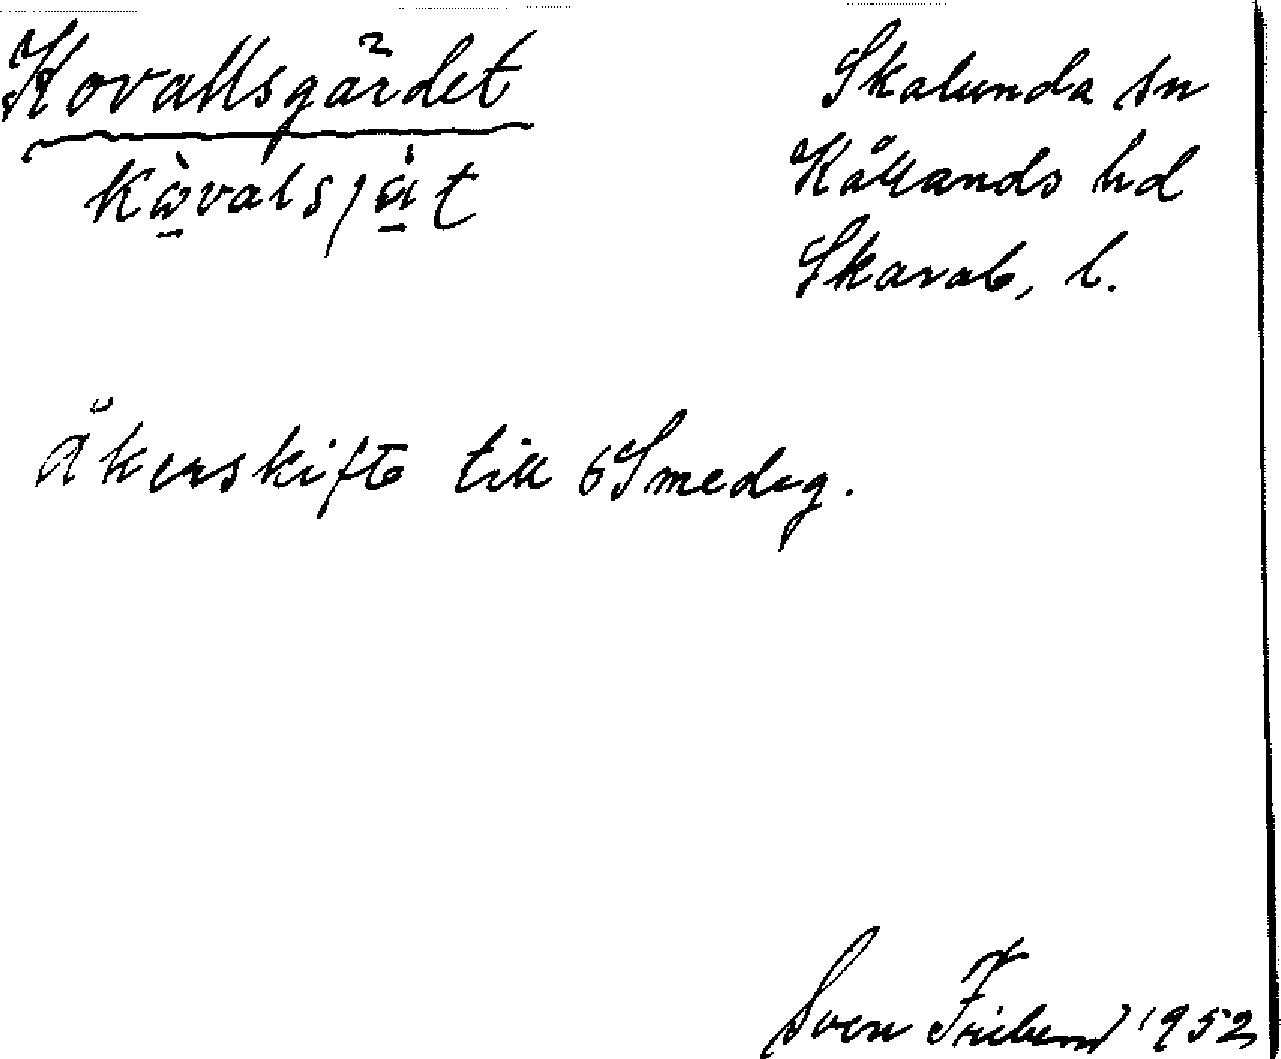 Kovallsgärdet
Skalunda sn
Kållands hd
Skarab. l.
Åkerskifte till 6 Smedsg.
Sven Friberg 1952